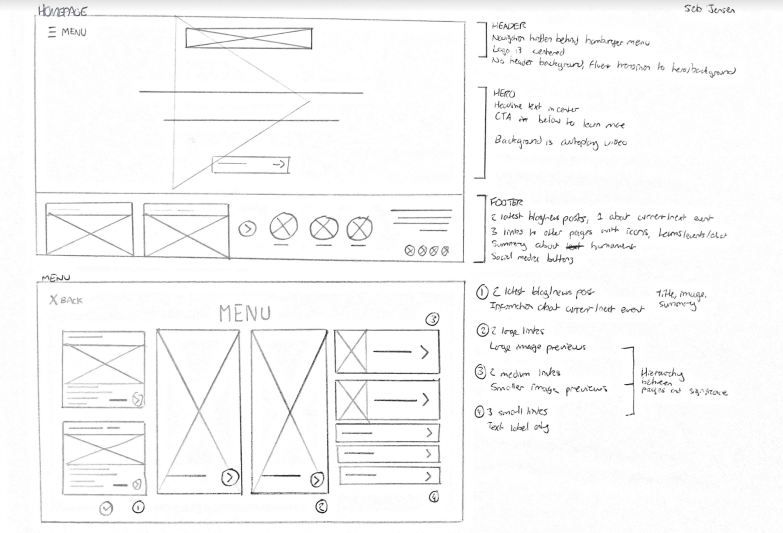 HOMEPAGE
Seb Jensen
MENU
HEADER
Navigation hidden behind hamburger menu
Logo is centered
No header background, fluent transition to hero/background
HERO
Headline text in center
CTA below to learn more
Background is autoplay video
FOOTER
2 latest blog/news posts, 1 about current/next event
3 links to other pages with icons, teams/events/
Summary about
Social media buttons
MENU
X BACK
MENU
1 2 latest blog/news post
Information about current/next event
Title, image,
summary
2 2 large links
Large image previews
3 2 medium links
Smaller image previews
Hierarchy
between
pages and significance
4 3 small links
Text label only
3
1
2
4